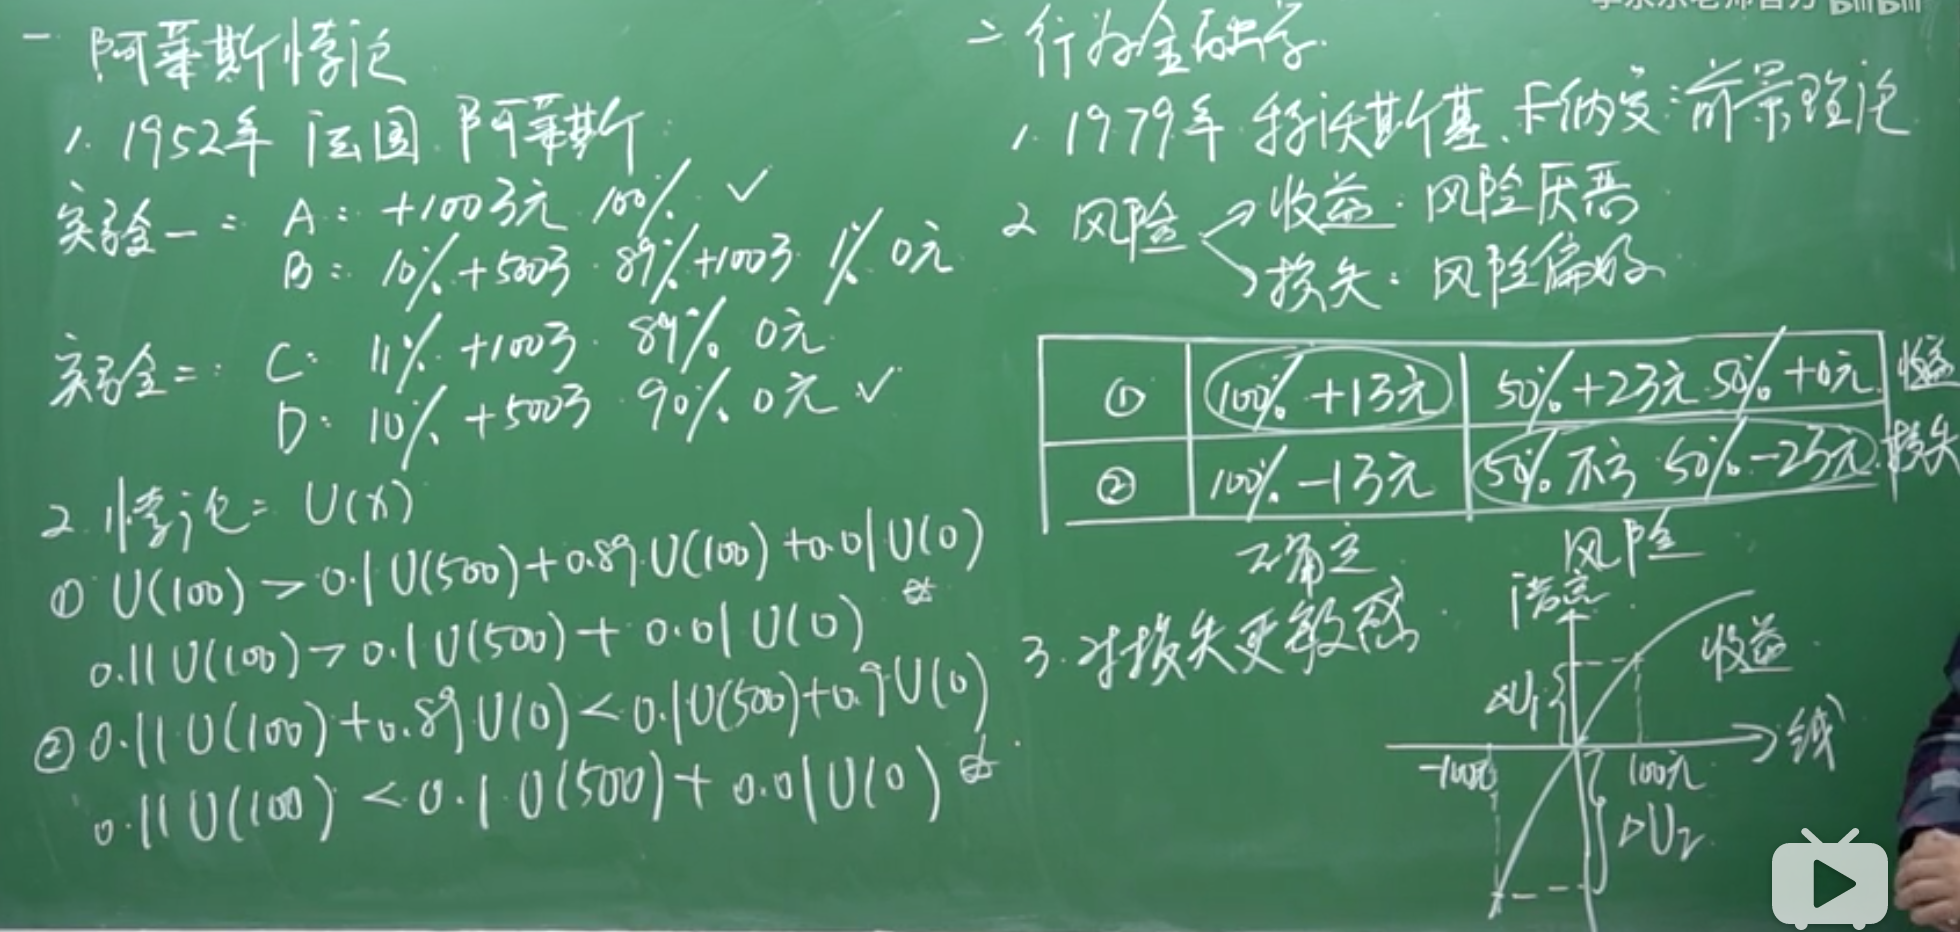 一 阿莱斯悖论
1. 1952年 法国 阿莱斯
实验一: A: +100万元 100% ✓
B: 10% +500万 89% +100万 1% 0元
实验二: C: 11% +100万 89% 0元
D: 10% +500万 90% 0元 ✓
2. 悖论: U(x)
① U(100) > 0.1U(500)+0.89U(100)+0.01U(0)
0.11U(100) > 0.1U(500)+0.01U(0)
② 0.11U(100)+0.89U(0) < 0.1U(500)+0.9U(0)
0.11U(100) < 0.1U(500)+0.01U(0)
二 行为金融学
1. 1979年 特沃斯基、卡纳曼:前景理论
2 风险 收益:风险厌恶
损失:风险偏好
① 100% +1万元 50% +2万元 50% +0元 收益
② 100% -1万元 50% 不亏 50% -2万元 损失
确定 风险
3. 对损失更敏感
收益
ΔU1
钱
-100元 100元
ΔU2